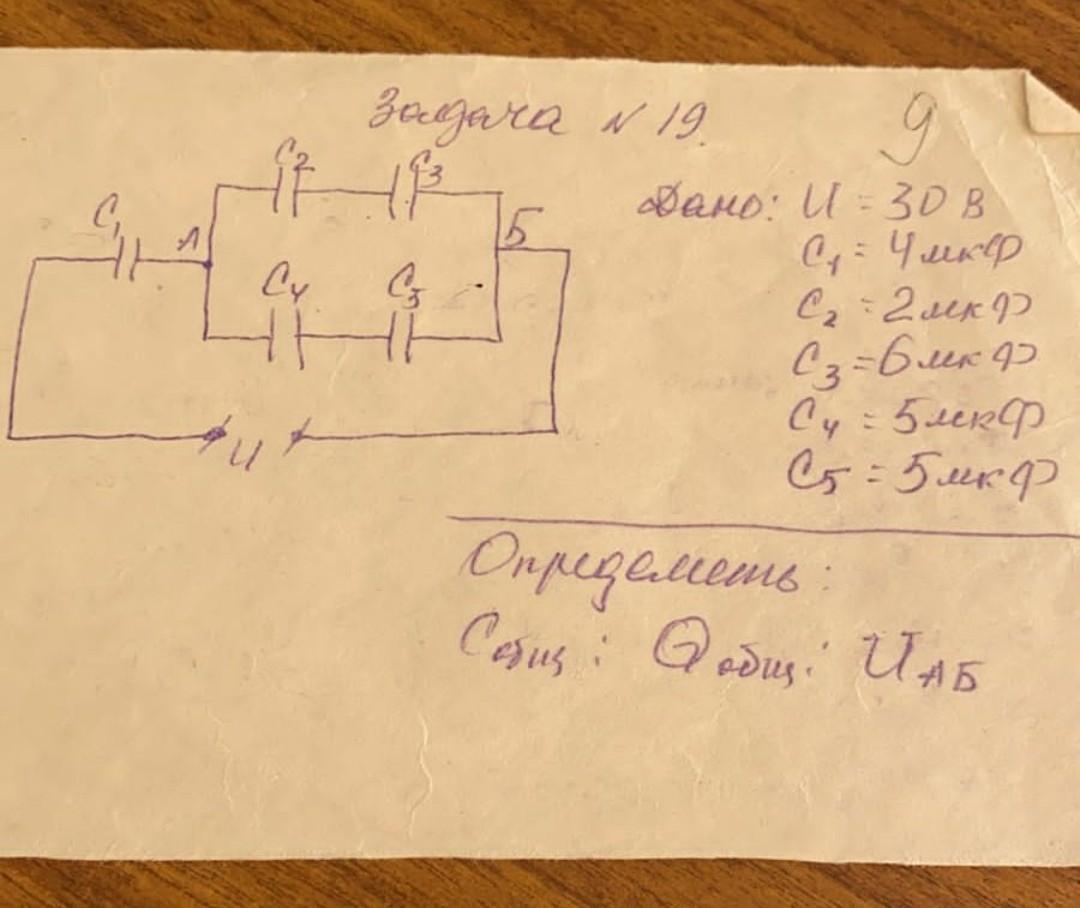 Задача N 19
9
C2
C3
C1
A
Б
C4
C5
U
Дано: U = 30 В
C1 = 4 мкФ
C2 = 2 мкФ
C3 = 6 мкФ
C4 = 5 мкФ
C5 = 5 мкФ
Определить:
Cобщ; Qобщ; UАБ